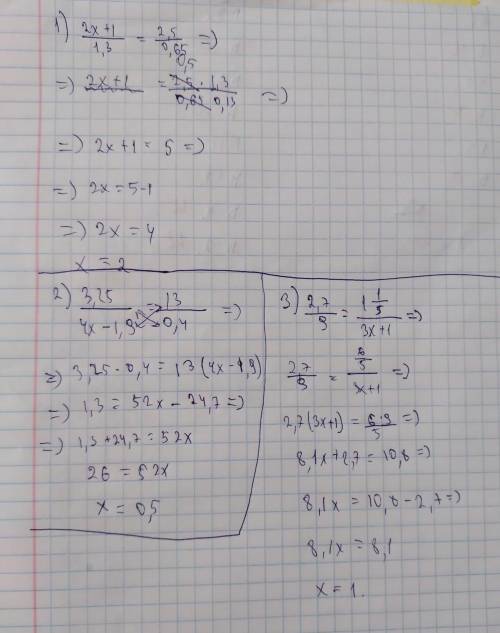 1) (2x+1)/1,3 = 2,5/0,65 =>
=> 2x+1 = (2,5 · 1,3)/(0,65 0,13) =>
0,5
=> 2x+1 = 5 =>
=> 2x = 5-1
=> 2x = 4
x = 2
2) 3,25/(4x-1,9) = 13/0,4 =>
=> 3,25 · 0,4 = 13(4x-1,9)
=> 1,3 = 52x - 24,7 =>
=> 1,3 + 24,7 = 52x
26 = 52x
x = 0,5
3) 2,7/9 = 1 1/5/(3x+1) =>
2,7/9 = 6/5/(x+1) =>
2,7(3x+1) = 6·9/5 =>
8,1x + 2,7 = 10,8 =>
8,1x = 10,8 - 2,7 =>
8,1x = 8,1
x = 1.